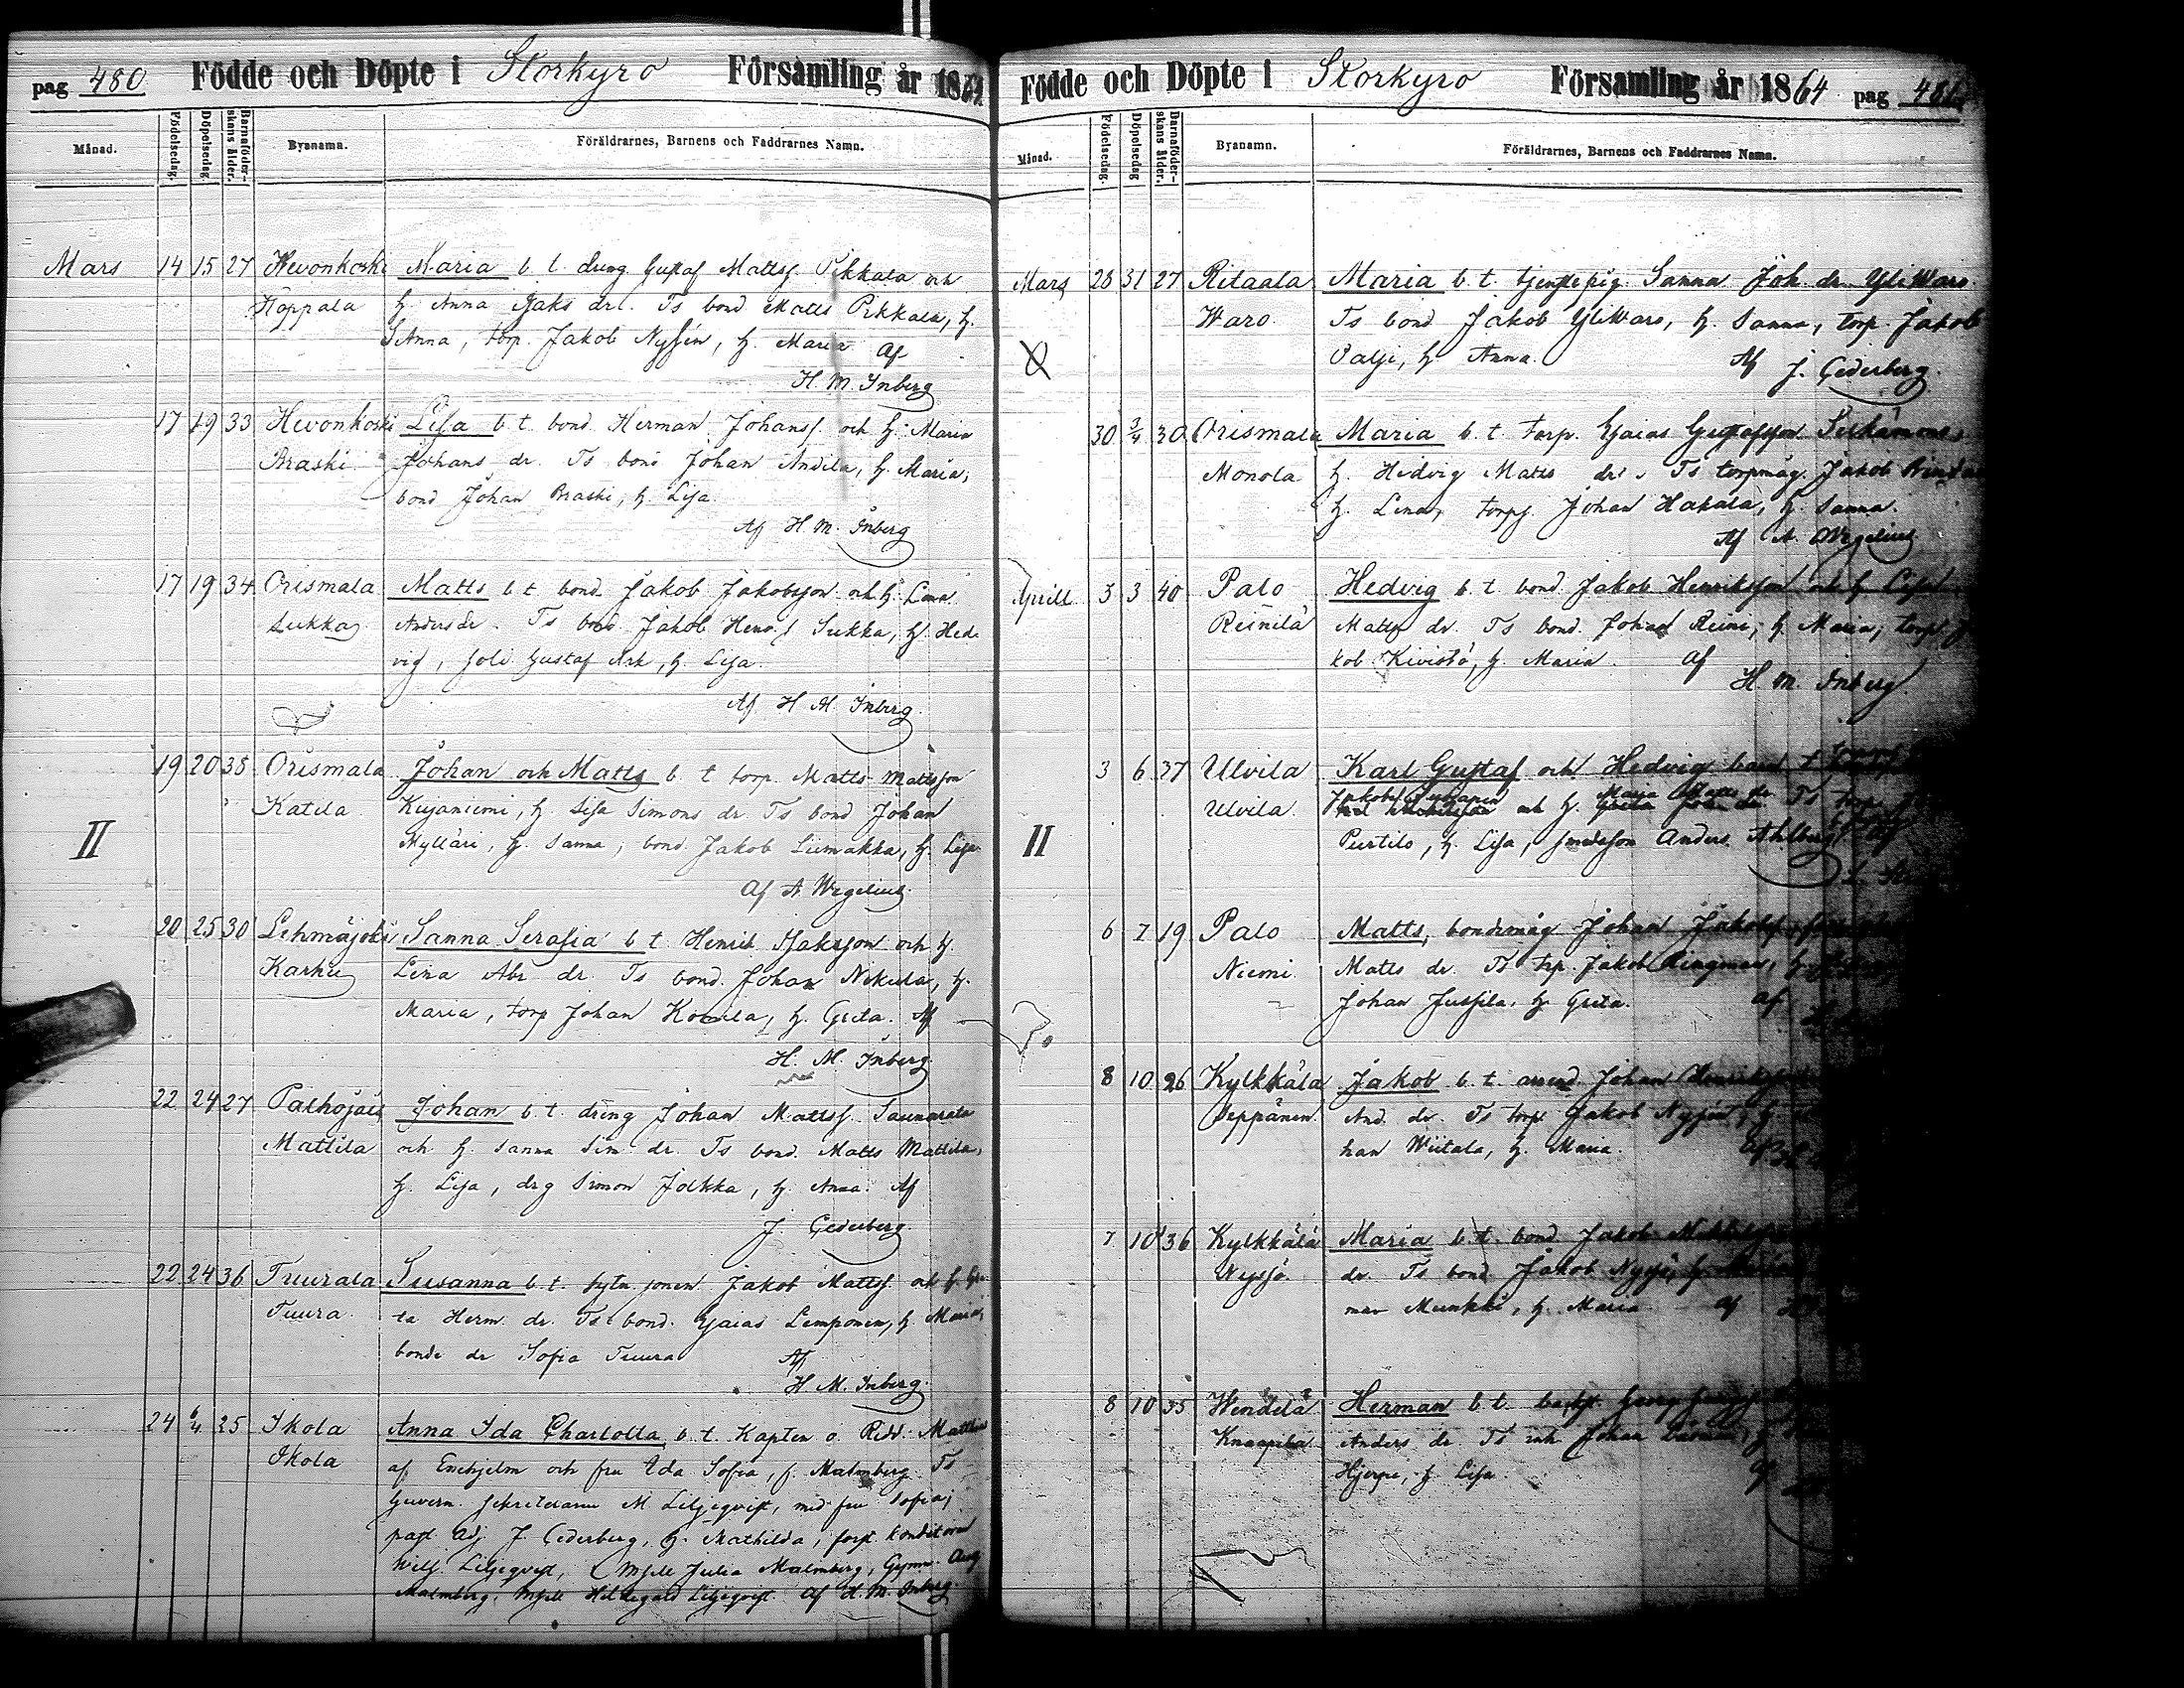 pag 480 Födde och Döpte i Storkyro Församling år 1864
Månad. Födelsedag. Döpelsedag Barnaföderskans ålder. Byanamn. Föräldrarnes, Barnens och Faddrarnes Namn.
Mars 14 15 27 Hevonkoski Maria b. t. dreng. Gustaf Mattss. Pikkala och
Hoppala h. Anna Jaks dr. Ts bond Matts Pikkala, h.
SAnna, torp. Jakob Nyssén, h. Maria Af
H. M. Inberg
17 19 33 Hevonkoski Lisa b t bond. Herman Johanss och h. Maria
Braski Johans dr. Ts bond Johan Andila, h. Maria,
bond Johan Braski, h. Lisa.
Af H M. Inberg
17 19 34 Orismala Matts b t bond Jakob Jakobsson och h. Lena
Sukka Anders dr. Ts bond. Jakob Henrs Sukka, h. Hed
vig, sold Gustaf Ark, h. Lisa.
Af H M. Inberg
19 20 38 Orismala Johan och Matts b t torp. Matts Mattsson
Katila Kujaniemi, h. Lisa Simons dr Ts bond Johan
II Mylläri, h. Sanna, bond. Jakob Liimakka, h. Lisa
Af A Wegelius
20 25 30 Lehmäjoki Sanna Serafia b t Henrik Isaksson och h.
Karhu Lina Abr dr. Ts bond. Johan Nikula, h.
Maria, torp Johan Komila, h. Greta. Af
H. M. Inberg
22 24 27 Palhojais Johan b. t. dreng Johan Mattss. Saunarata
Mattila och h. Sanna Sim dr. Ts bond. Matts Mattila,
h. Lisa, drg Simon Jolkka, h. Anna. Af
J. Cederberg
22 24 36 Tuurala Susanna b. t. Jakob Mattss och h. Gre
Tuura ta Herm. dr. Ts bond. Esaias Lemponen, h. Maria,
bonde dr Sofia Tuura Af
H M. Inberg
24 6/4 25 Ikola Anna Ida Charlotta b. t. Kapten o. Ridd. Matthias
Ikola af Enehjelm och fru Ida Sofia, f. Malmberg. Ts
Guvern. sekreteraren M Liljeqvist, med fru Sofia;
past adj J. Cederberg, h. Mathilda, forst konditoren
Wilh. Liljeqvist, Mselle Julia Malmberg, Gymn. Aug
Malmberg, Mselle Hildegard Liljeqvist. Af H. M. Inberg.
Födde och Döpte i Storkyro Församling år 1864 pag 481
Månad. Födelsedag. Döpelsedag Barnaföderskans ålder. Byanamn. Föräldrarnes, Barnens och Faddrarnes Namn.
Mars 28 31 27 Ritaala Maria b. t. tjenstepig. Sanna Joh. dr. YliWaro
Waro. Ts bond Jakob YliWaro, h. Sanna, torp. Jakob
Valji, h Anna. Af J. Cederberg.
30 3/4 30 Orismala Maria b. t. torp. Esaias Gustafsson
Monola h. Hedvig Matts dr. Ts torpmåg. Jakob
h. Lina, torps Johan Hakala, h. Sanna.
Af A. Wegelius
Aprill 3 3 40 Palo Hedvig b. t. bond Jakob Henriksson och h Lisa
Reinilä Matts dr. Ts bond. Johan Reini, h. Maria, torp. J
kob Kivistö, h. Maria. Af
H. M. Inberg.
3 6 37 Ulvila Karl Gustaf och Hedvig barn t
Ulvila. och h. Maria Matts dr. Ts torp
II Purtilo, h. Lisa, smedsson Anders Ahlberg Af
6 7 19 Palo Matts, bondemåg Johan Jakobs
Niemi. Matts dr. Ts trp. Jakob Ringman, h.
Johan Jussila, h. Greta. af
8 10 26 Kylkkälä Jakob b. t. arrend. Johan Henriksson
Seppänen. And. dr. Ts torp Jakob Nyssén, h
han Wiitala, h. Maria. af
7 10 36 Kylkkälä Maria b. t. bond Jakob
Nyssö. dr. Ts bond Jakob h.
man Munkki, h. Maria af
8 10 35 Wendelä Herman b t. Georg
Knaapila Anders dr. Ts Johan
Hjerpe, h Lisa. af